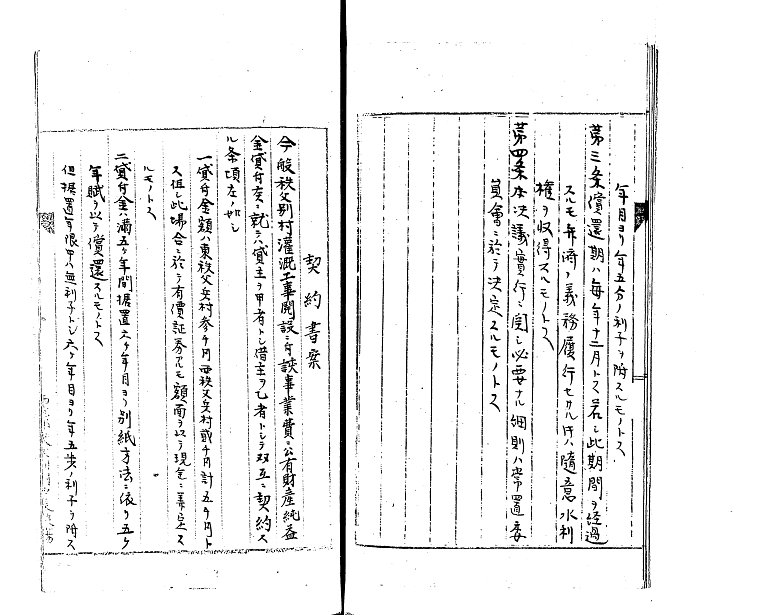 年目ヨリ年五分ノ利子ヲ附スルモノトス
第三条償還期ハ毎年十二月トス若シ此期間ヲ経過
スルモ弁済ノ義務履行セサル片ハ随意水利
権ヲ収得スルモノトス
第四条本決議実行ニ関シ必要ナル細則ハ常置委
員會ニ於テ決定スルモノトス
契約書案
今般秩父別村灌漑工事開設ニ付該事業費ニ公有財産純益
金貸付方ニ就テハ貸主ヲ甲者トシ借主ヲ乙者トシテ双互ニ契約ス
ル条項左ノ如シ
一貸付金額ハ東秩父兵村参千円西秩父兵村貳千円計五千円ト
ス但シ此場合ニ於テ有價証券アルモ額面ヲ以テ現金ニ算定ス
ルモノトス
二貸付金ハ満五ヶ年間据置六ヶ年目ヨリ別紙方法ニ依リ五ヶ
年賦ヲ以テ償還スルモノトス
但据置年限中ハ無利子トシ六ヶ年目ヨリ年五歩ノ利子ヲ附ス